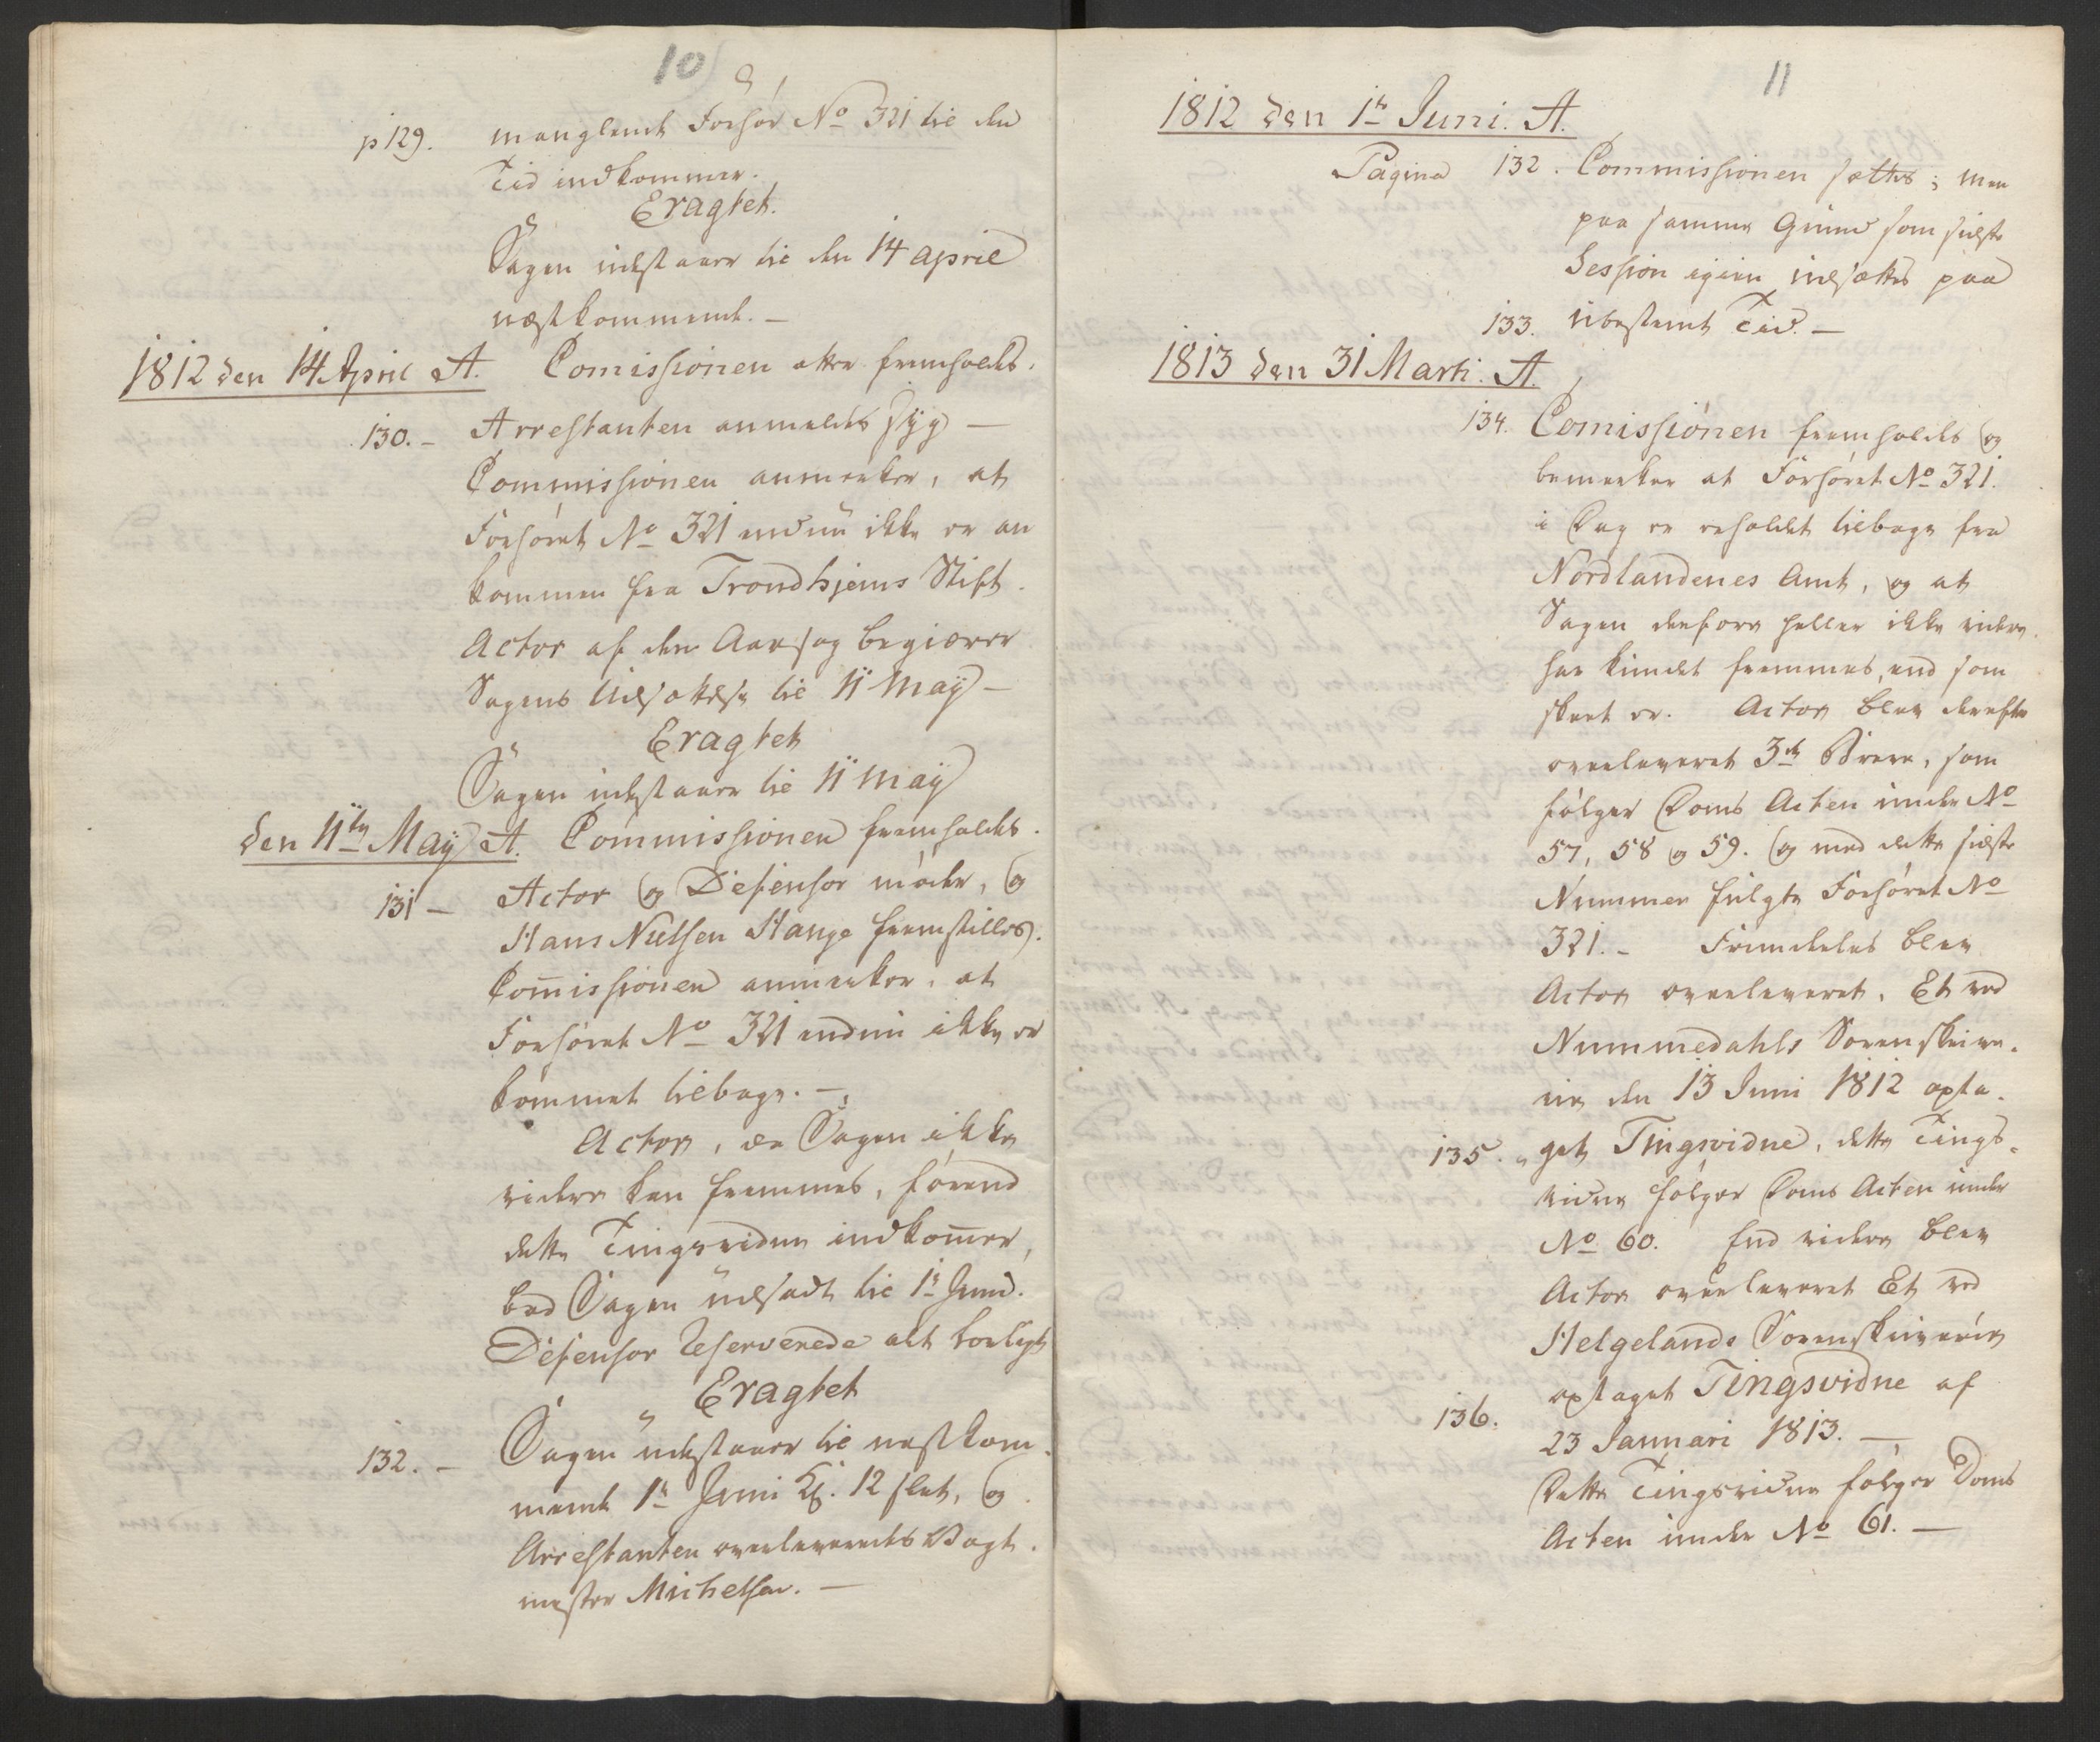 10
p 129. manglende Forhør No 321 til den
Tid indkommer.
Eragtet.
Sagen udestaaer til den 14 april
næstkommende. —
1812 den 14 April A. Comissionen atter fremholdes.
130. – Arrestanten anmeldes syg —
Commissionen anmerker, at
Forhøret No 321 endnu ikke er an
kommen fra Trondhjems Stift.
Actor af den Aarsag begiærer
Sagens Udsættelse til 11 Maÿ —
Eragtet
Sagen udestaaer til 11 Maÿ
den 11te Maÿ A. Commissionen fremholdes.
131 – Actor og Defensor møder, og
Hans Nielsen Hauge fremstilles.
Com̄issionen anmerker, at
Forhøret No 321 endnu ikke er
kommet tilbage. –
Actor, da Sagen ikke
videre kan fremmes, førend
dette Tingsvidne indkom̄er,
bad Sagen udsadt til 1te Juni.
Defensor reserverede alt lovligt
Eragtet
132. – Sagen udestaaer til næstkom
mende 1te Juni Kl. 12 slet, og
Arrestanten overleveredes Vagt-
mester Michelsen. —
11
1812 den 1te Juni. A.
Pagina 132. Commissionen sættes; men
paa samme Grund som sidste
Session igien udsættes paa
133. ubestemt Tid. —
1813 den 31 Marti. A.
134. Comissionen fremholdes og
bemerker at Forhøret No 321.
i Dag er erholdet tilbage fra
Nordlandenes Amt, og at
Sagen derfore heller ikke videre
har kundet fremmes, end som
skeet er. Actor blev derefter
overleveret 3de Breve, som
følger Doms Acten under No
57, 58 og 59. og med dette sidste
Nummer fulgte Forhøret No
321. – Fremdeles blev
Actor overleveret, Et ved
Nummedahls Sorenskrive-
rie den 13 Juni 1812 opta-
135. get Tingsvidne, dette Tings-
vidne følger Doms Acten under
No 60. End videre blev
Actor overleveret Et ved
Helgelands Sorenskriverie
optaget Tingsvidne af
136. 23 Januari 1813. —
Dette Tingsvidne følger Doms
Acten under No 61. —